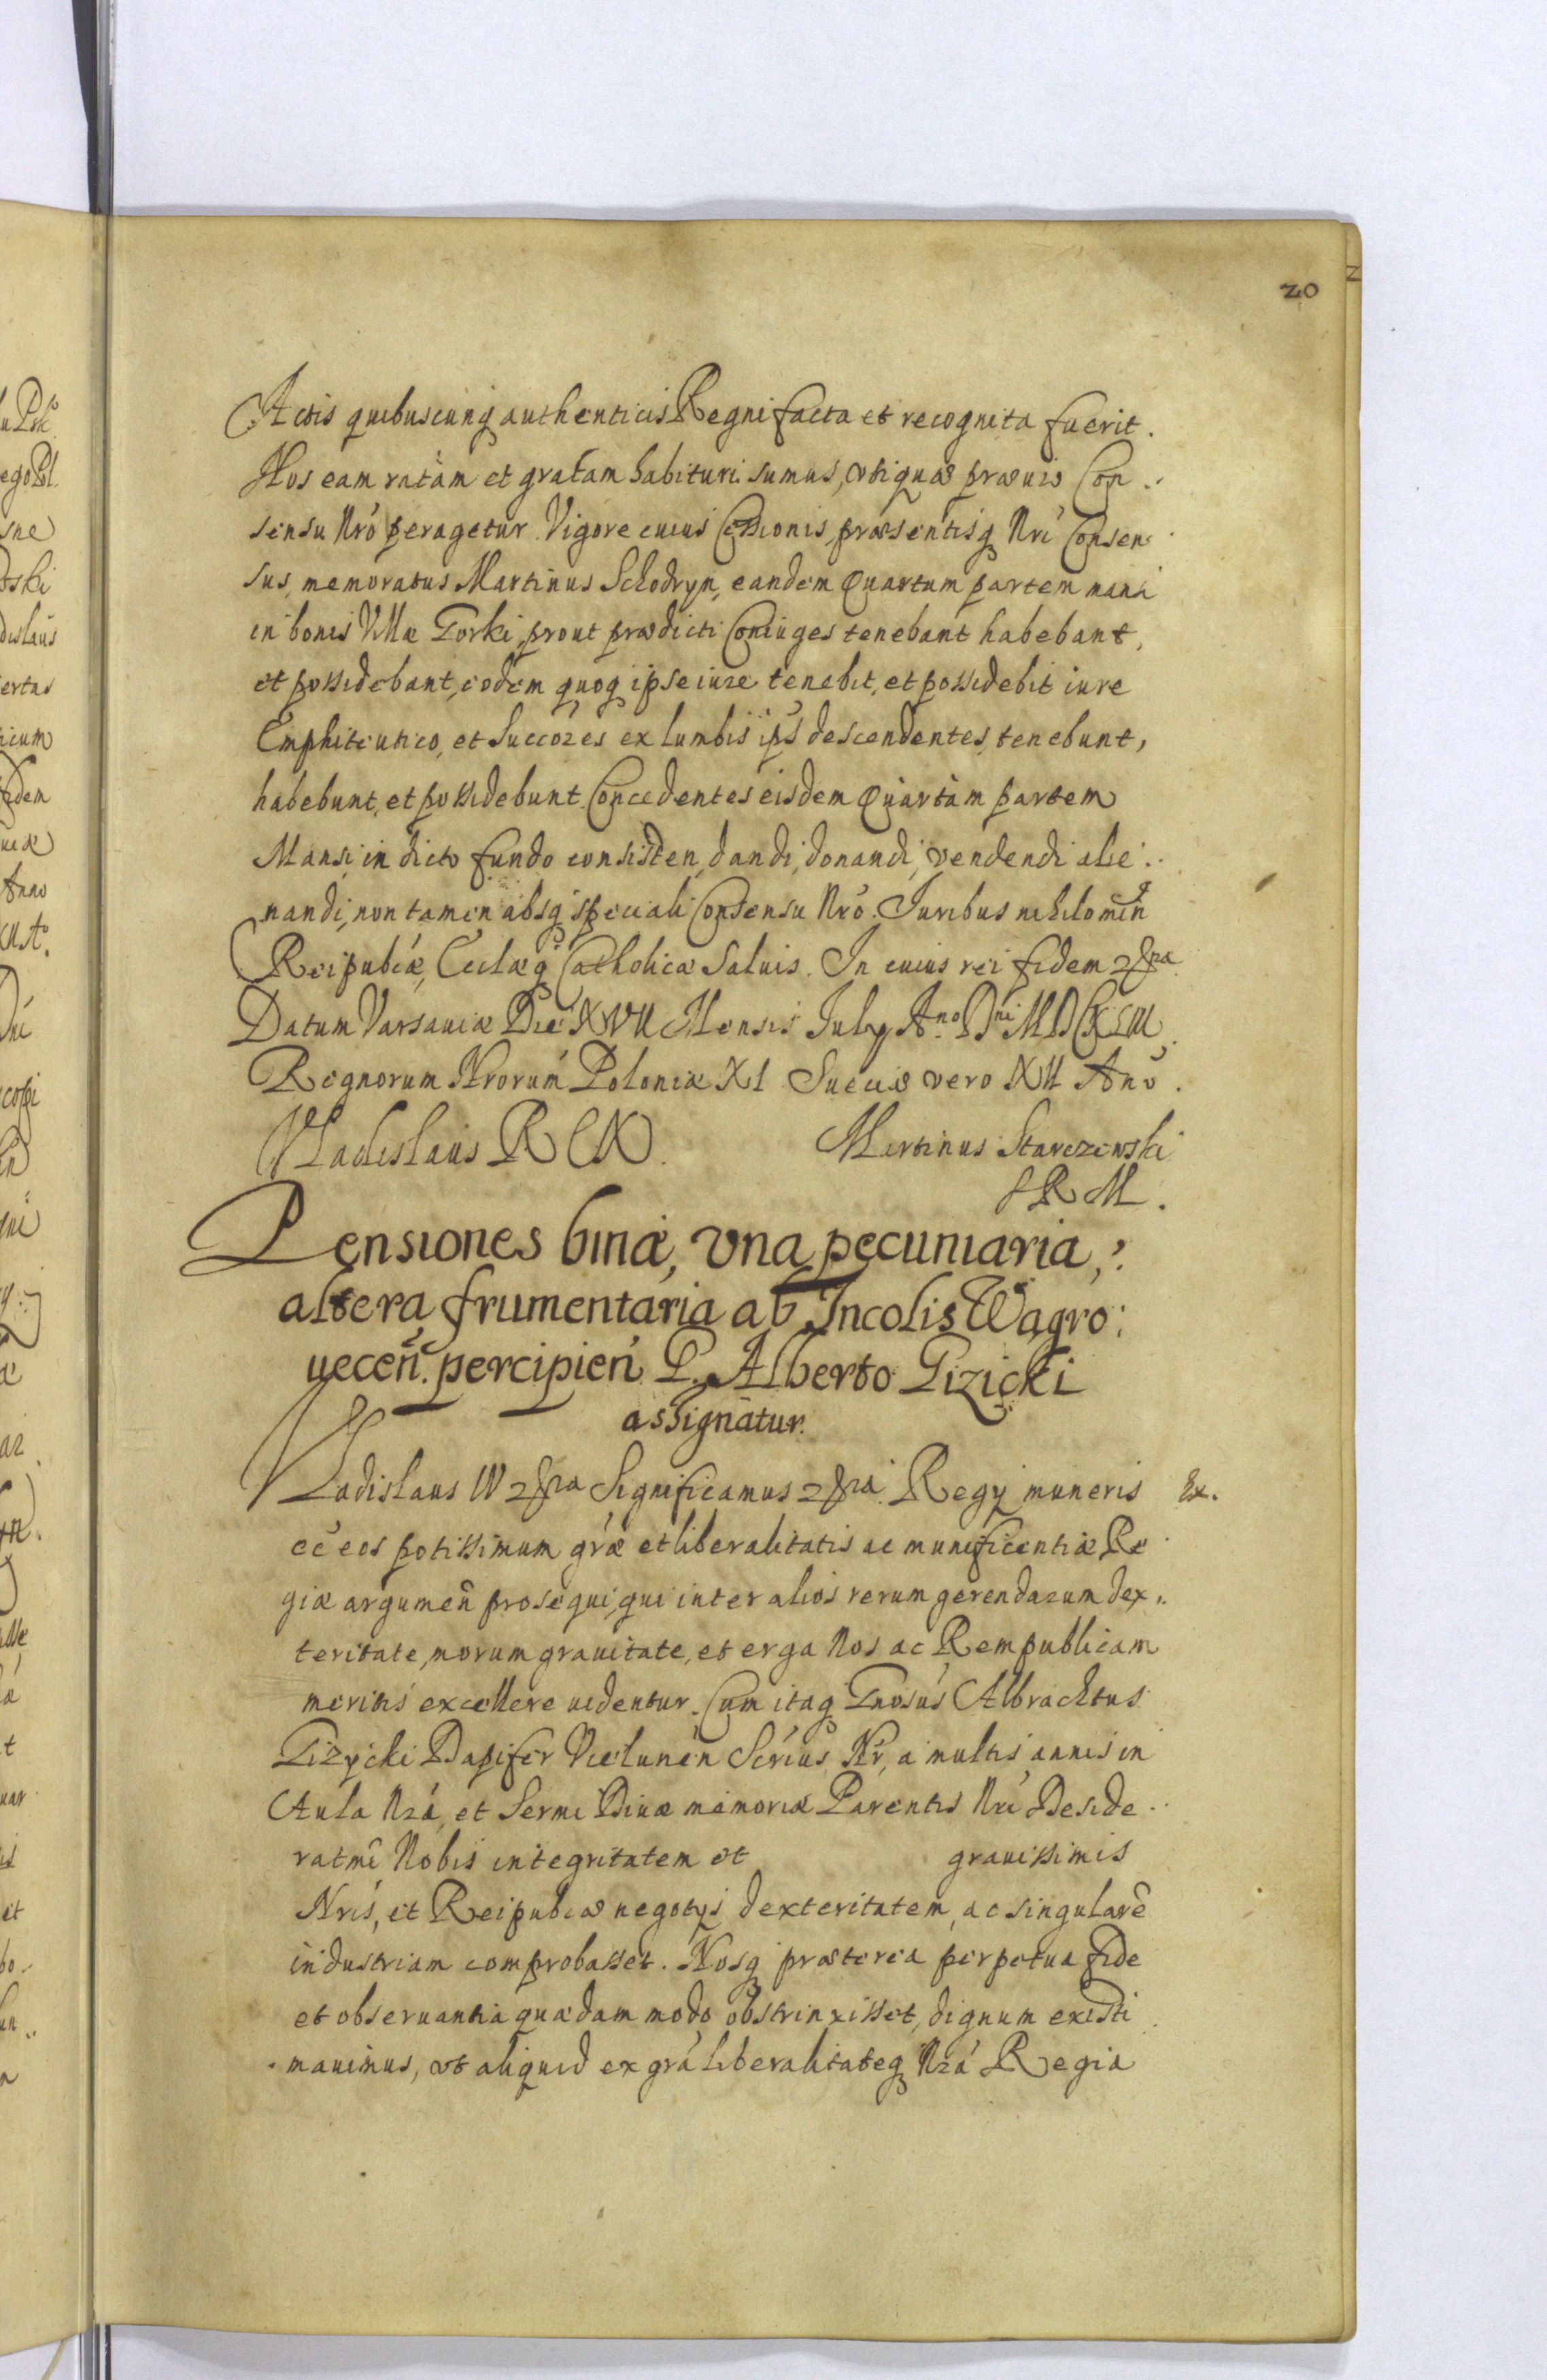 20
Actis quibuscunq authenticis Regni facta et recognita fuerit.
Nos eam ratam et gratam habituri sumus, utiquae praevio Con
sensu Nro peragetur. Vigore cuius Cessionis, praesentisq Nri Consen
sus, memoratus Martinus Schodryn, eandem Quartam partem mansi
in bonis Villae Gorki, prout praedicti Coniuges tenebant habebant,
et possidebant, eodem quoq ipse iure tenebit, et possidebit iure
Emphiteutico, et Succores ex lumbis ips descendentes, tenebunt,
habebunt, et possidebunt. Concedentes eisdem Quartam partem
Mansi in dicto fundo consisten, dandi, donandi, vendendi alie
nandi, non tamen absq speciali Consensu Nro. Iuribus nihilomin
Reipubcae, Ecclaeq Catholicae Salvis. In cuius rei fidem &ra
Datum Varsaviae Die XVII Mensis July Ano Dni MDCXLIII
Regnorum Nrorum Poloniae XI Sueciae vero XII Ano.
Vladislaus REX. Martinus Starczewski
SRM.
Pensiones binae, una pecuniaria,
altera frumentaria ab Incolis Wagro
vecen. percipien. G. Alberto Gizicki
assignatur.
Vladislaus IV &ra Significamus &ra. Regij muneris Ex.
ee eos potissimum grae et liberalitatis ac munificentiae Re
giae argumen prosequi, qui inter alios rerum gerendarum dex
teritate, morum gravitate, et erga Nos ac Rempublicam
meritis excellere videntur. Cum itaq Gnosus Albrachtus
Gizycki Dapifer Vielunen Secrius Nr, a multis annis in
Aula Nra, et Sermi Divae memoriae Parentis Nri Deside
ratmi Nobis integritatem et gravissimis
Nris, et Reipubcae negotys dexteritatem, ac singulare
industriam comprobasset. Nosq praeterea perpetua fide
et observantia quadam modo obstrinxisset, dignum existi
mavimus, ut aliquid ex gra liberalitateq Nra Regia